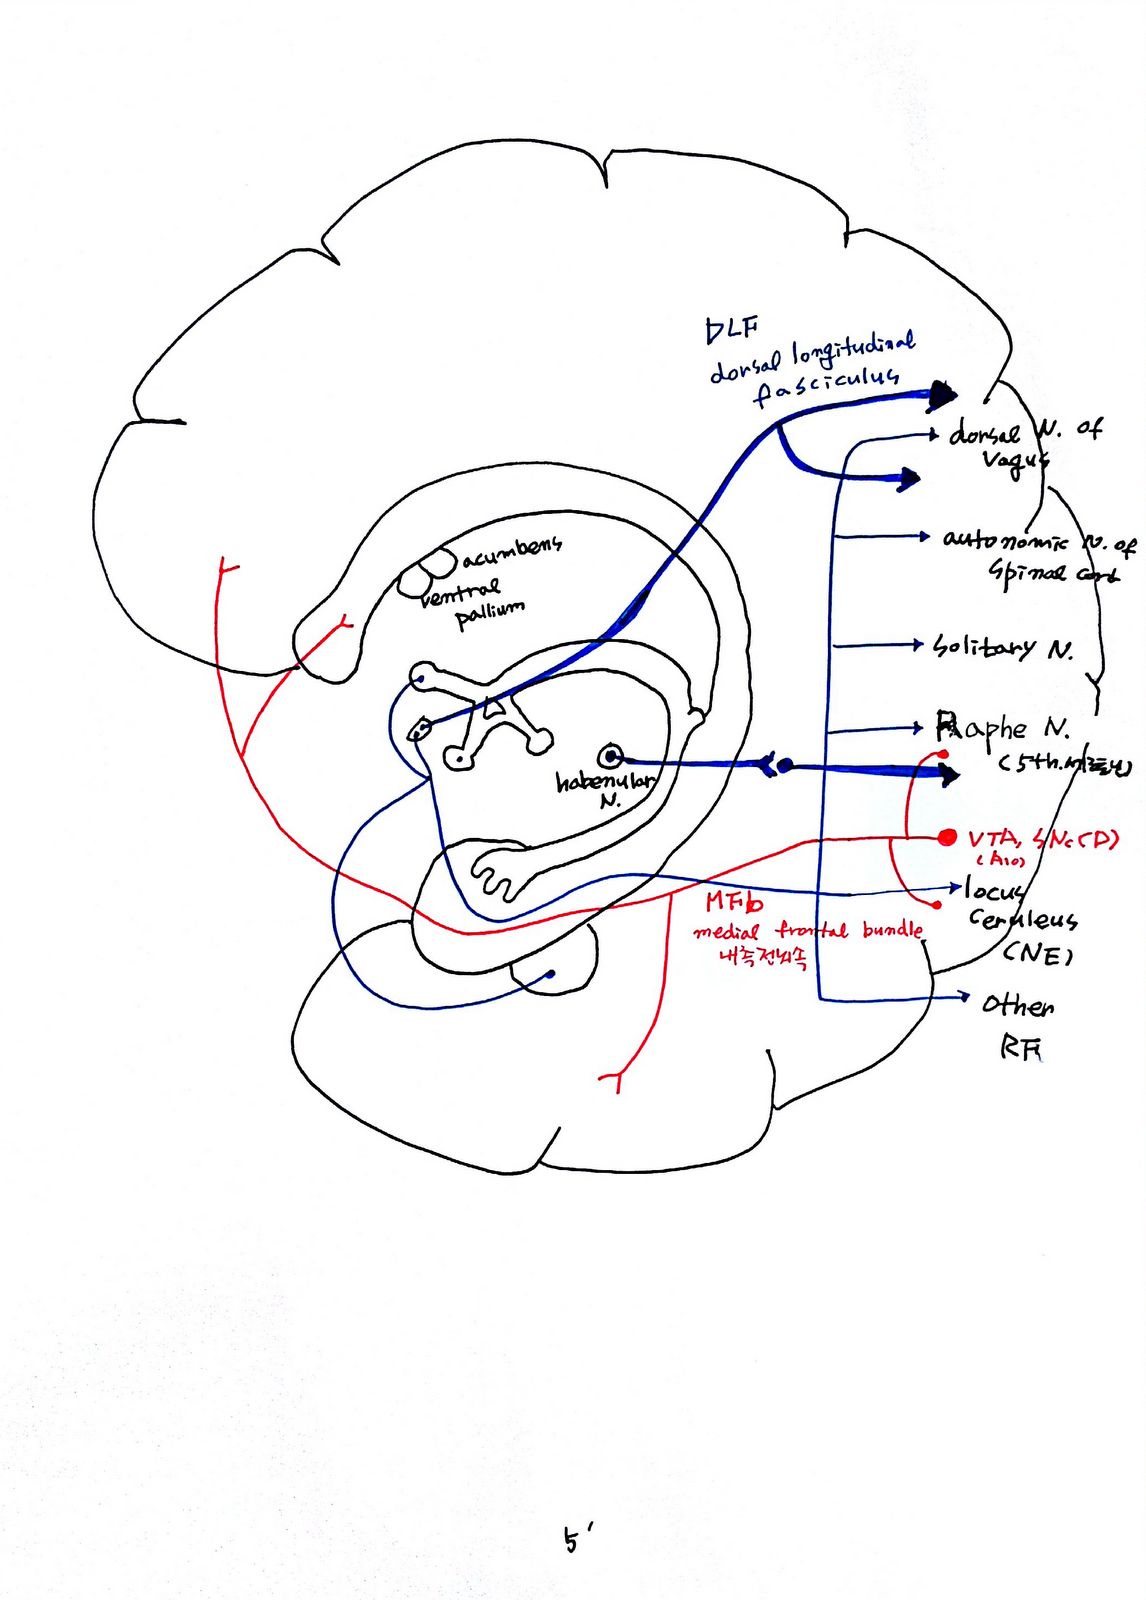 DLF
dorsal longitudinal
fasciculus
dorsal N. of
Vagus
acumbens
ventral
pallium
autonomic N. of
spinal cord
solitary N.
Raphe N.
(5th.세로토닌)
habenular
N.
VTA, SNc(D)
(A10)
MFb
medial frontal bundle
내측전뇌속
locus
ceruleus
(NE)
other
RF
5'